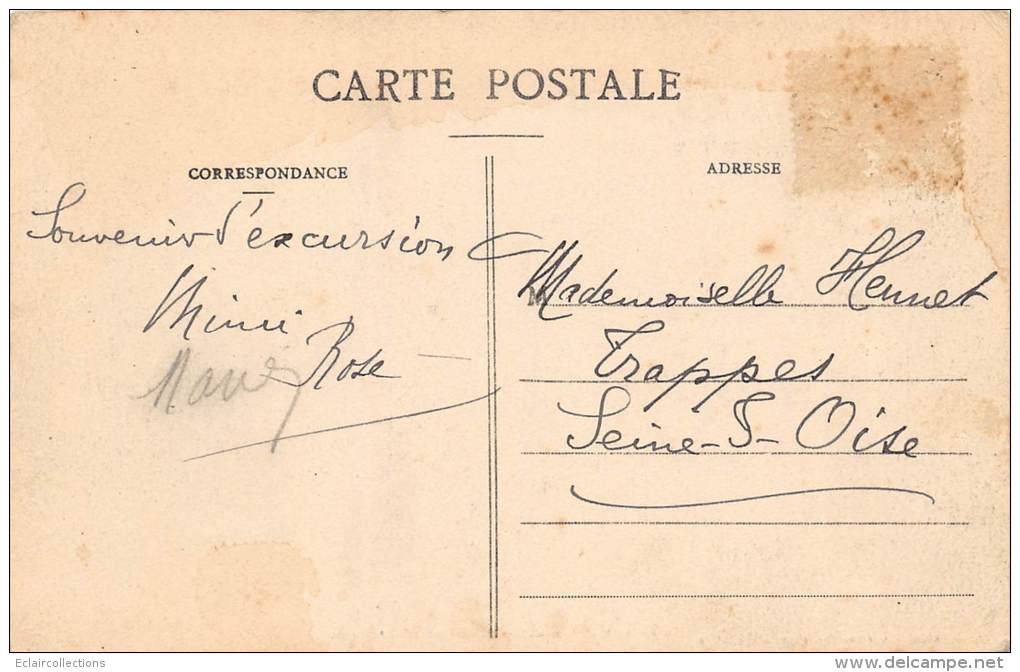 CARTE POSTALE
CORRESPONDANCE
ADRESSE
Souvenir d'excursion
Mimi
Rose
Mademoiselle Hennet
Trappes
Seine-S-Oise
Eclaircollections
http://eclaircollections.delcampe.net